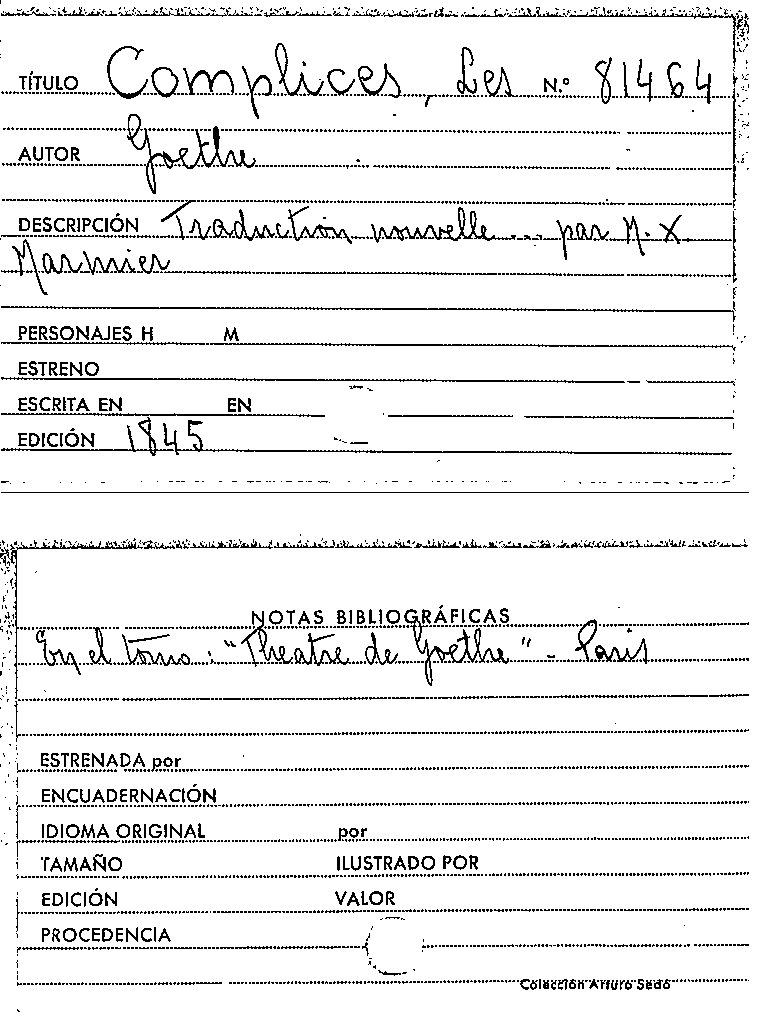 TÍTULO Complices, Les N.º 81464
AUTOR Goethe
DESCRIPCIÓN Traduction nouvelle ... par M. X.
Marmier
PERSONAJES H M
ESTRENO
ESCRITA EN EN
EDICIÓN 1845
NOTAS BIBLIOGRÁFICAS
En el tomo: "Theatre de Goethe" - Paris
ESTRENADA por
ENCUADERNACIÓN
IDIOMA ORIGINAL por
TAMAÑO ILUSTRADO POR
EDICIÓN VALOR
PROCEDENCIA
Colección Arturo Sedó